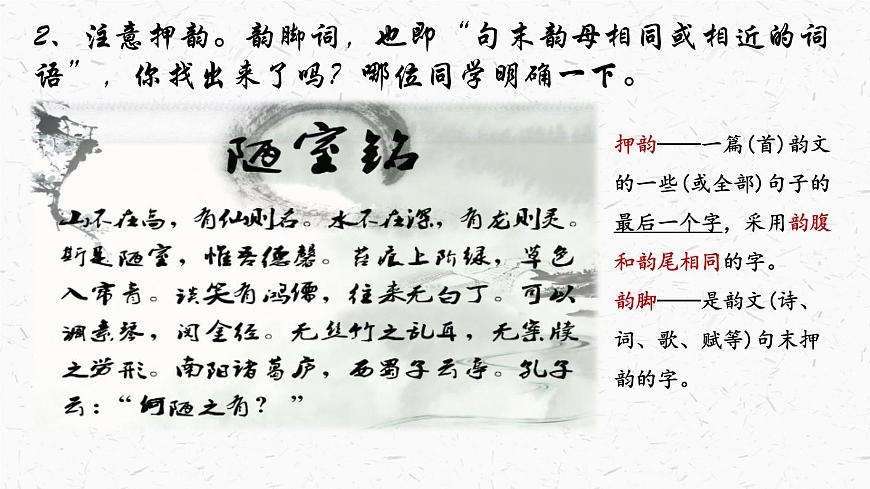 2、注意押韵。韵脚词，也即“句末韵母相同或相近的词
语”，你找出来了吗？哪位同学明确一下。
陋室铭
山不在高，有仙则名。水不在深，有龙则灵。
斯是陋室，惟吾德馨。苔痕上阶绿，草色
入帘青。谈笑有鸿儒，往来无白丁。可以
调素琴，阅金经。无丝竹之乱耳，无案牍
之劳形。南阳诸葛庐，西蜀子云亭。孔子
云：“何陋之有？”
押韵——一篇(首)韵文
的一些(或全部)句子的
最后一个字，采用韵腹
和韵尾相同的字。
韵脚——是韵文(诗、
词、歌、赋等)句末押
韵的字。